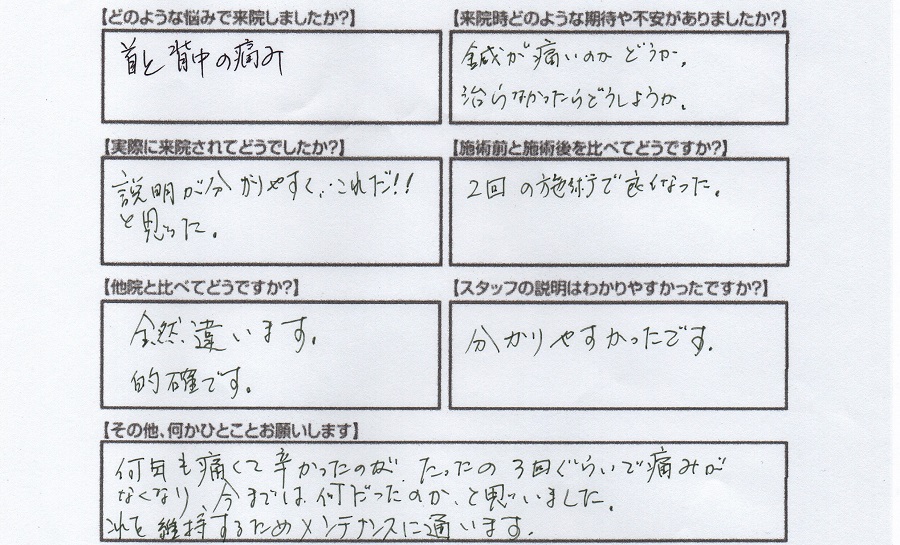 【どのような悩みで来院しましたか?】
首と背中の痛み
【来院時どのような期待や不安がありましたか?】
鍼が痛いのかどうか。
治らなかったらどうしようか。
【実際に来院されてどうでしたか?】
説明が分かりやすく、これだ!!
と思った。
【施術前と施術後を比べてどうですか?】
2回の施術で良くなった。
【他院と比べてどうですか?】
全然違います。
的確です。
【スタッフの説明はわかりやすかったですか?】
分かりやすかったです。
【その他、何かひとことお願いします】
何年も痛くて辛かったのが、たったの3回ぐらいで痛みが
なくなり、今までは何だったのか、と思いました。
これを維持するためメンテナンスに通います。